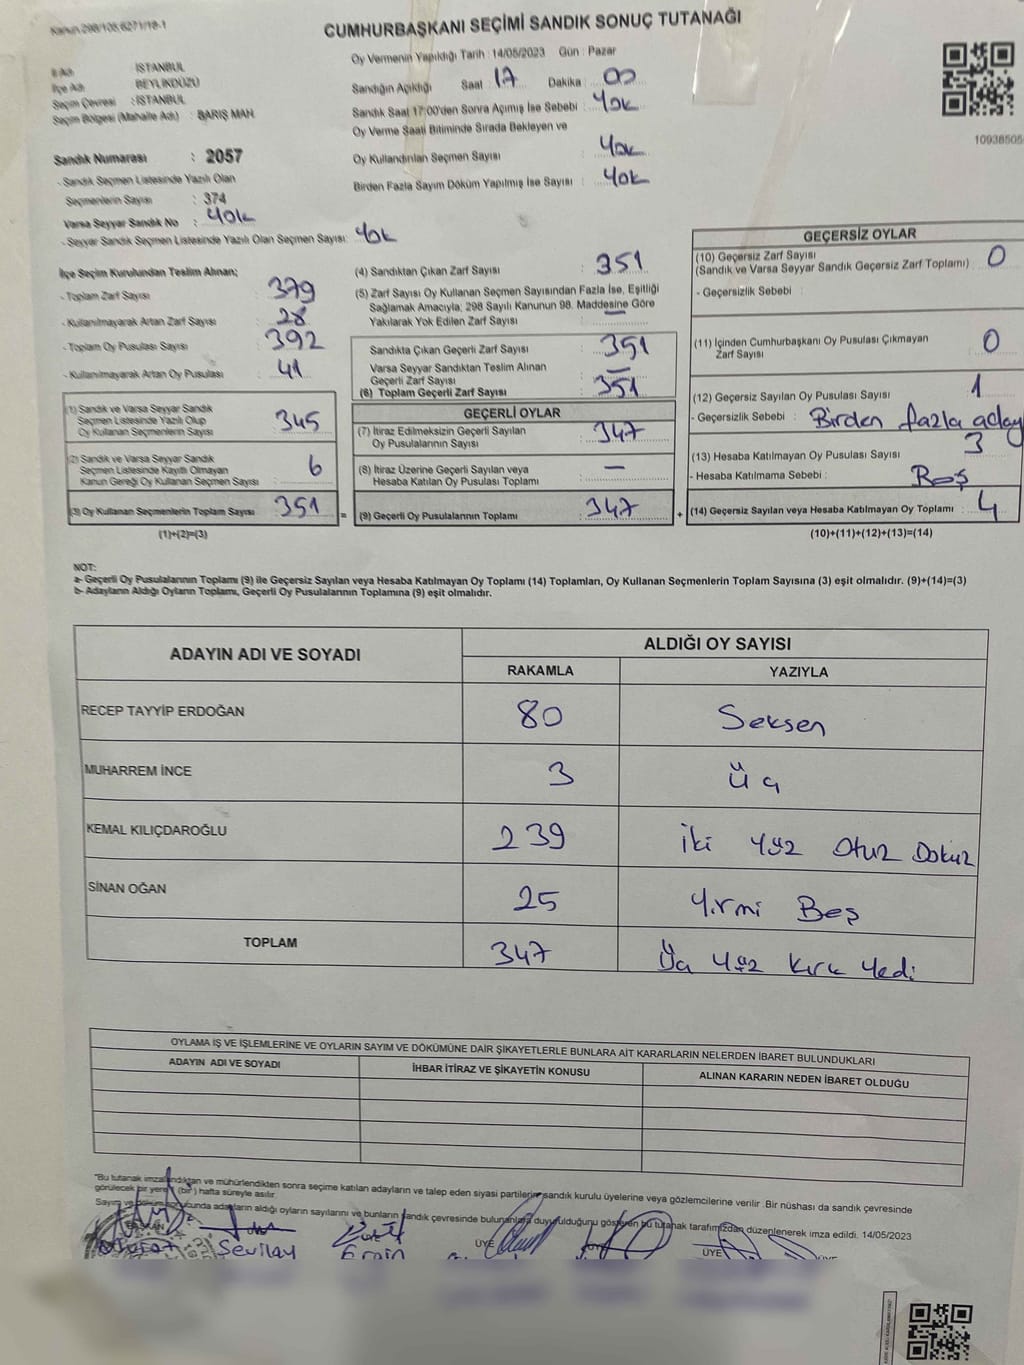 Kanun:298/105,6271/18-1
CUMHURBAŞKANI SEÇİMİ SANDIK SONUÇ TUTANAĞI
İl Adı : İSTANBUL
İlçe Adı : BEYLİKDÜZÜ
Seçim Çevresi : İSTANBUL
Seçim Bölgesi (Mahalle Adı) : BARIŞ MAH.
Oy Vermenin Yapıldığı Tarih : 14/05/2023 Gün : Pazar
Sandığın Açıldığı Saat : 17 Dakika : 00
Sandık Saat 17:00'den Sonra Açımış İse Sebebi : Yok
Oy Verme Saati Bitiminde Sırada Bekleyen ve
Oy Kullandırılan Seçmen Sayısı : Yok
Birden Fazla Sayım Döküm Yapılmış İse Sayısı : Yok
10938505
Sandık Numarası : 2057
- Sandık Seçmen Listesinde Yazılı Olan
Seçmenlerin Sayısı : 374
Varsa Seyyar Sandık No : Yok
- Seyyar Sandık Seçmen Listesinde Yazılı Olan Seçmen Sayısı: Yok
İlçe Seçim Kurulundan Teslim Alınan;
- Toplam Zarf Sayısı : 379
- Kullanılmayarak Artan Zarf Sayısı : 28
- Toplam Oy Pusulası Sayısı : 392
- Kullanılmayarak Artan Oy Pusulası : 41
(1) Sandık ve Varsa Seyyar Sandık
Seçmen Listesinde Yazılı Olup
Oy Kullanan Seçmenlerin Sayısı : 345
(2) Sandık ve Varsa Seyyar Sandık
Seçmen Listesinde Kayıtlı Olmayan
Kanun Gereği Oy Kullanan Seçmen Sayısı : 6
(3) Oy Kullanan Seçmenlerin Toplam Sayısı : 351
(1)+(2)=(3)
(4) Sandıktan Çıkan Zarf Sayısı : 351
(5) Zarf Sayısı Oy Kullanan Seçmen Sayısından Fazla İse, Eşitliği
Sağlamak Amacıyla; 298 Sayılı Kanunun 98. Maddesine Göre
Yakılarak Yok Edilen Zarf Sayısı : —
Sandıkta Çıkan Geçerli Zarf Sayısı : 351
Varsa Seyyar Sandıktan Teslim Alınan
Geçerli Zarf Sayısı : —
(6) Toplam Geçerli Zarf Sayısı : 351
GEÇERLİ OYLAR
(7) İtiraz Edilmeksizin Geçerli Sayılan
Oy Pusulalarının Sayısı : 347
(8) İtiraz Üzerine Geçerli Sayılan veya
Hesaba Katılan Oy Pusulası Toplamı : —
= (9) Geçerli Oy Pusulalarının Toplamı : 347
GEÇERSİZ OYLAR
(10) Geçersiz Zarf Sayısı
(Sandık ve Varsa Seyyar Sandık Geçersiz Zarf Toplamı) : 0
- Geçersizlik Sebebi :
(11) İçinden Cumhurbaşkanı Oy Pusulası Çıkmayan
Zarf Sayısı : 0
(12) Geçersiz Sayılan Oy Pusulası Sayısı : 1
- Geçersizlik Sebebi : Birden fazla aday
(13) Hesaba Katılmayan Oy Pusulası Sayısı : 3
- Hesaba Katılmama Sebebi : Boş
+ (14) Geçersiz Sayılan veya Hesaba Katılmayan Oy Toplamı : 4
(10)+(11)+(12)+(13)=(14)
NOT:
a- Geçerli Oy Pusulalarının Toplamı (9) ile Geçersiz Sayılan veya Hesaba Katılmayan Oy Toplamı (14) Toplamları, Oy Kullanan Seçmenlerin Toplam Sayısına (3) eşit olmalıdır. (9)+(14)=(3)
b- Adayların Aldığı Oyların Toplamı, Geçerli Oy Pusulalarının Toplamına (9) eşit olmalıdır.
ADAYIN ADI VE SOYADI ALDIĞI OY SAYISI
RAKAMLA YAZIYLA
RECEP TAYYİP ERDOĞAN 80 Seksen
MUHARREM İNCE 3 Üç
KEMAL KILIÇDAROĞLU 239 İki Yüz Otuz Dokuz
SİNAN OĞAN 25 Yirmi Beş
TOPLAM 347 Üç Yüz Kırk Yedi
OYLAMA İŞ VE İŞLEMLERİNE VE OYLARIN SAYIM VE DÖKÜMÜNE DAİR ŞİKAYETLERLE BUNLARA AİT KARARLARIN NELERDEN İBARET BULUNDUKLARI
ADAYIN ADI VE SOYADI İHBAR İTİRAZ VE ŞİKAYETİN KONUSU ALINAN KARARIN NEDEN İBARET OLDUĞU
"Bu tutanak imzalandıktan ve mühürlendikten sonra seçime katılan adayların ve talep eden siyasi partilerin sandık kurulu üyelerine veya gözlemcilerine verilir. Bir nüshası da sandık çevresinde
görülecek bir yere (bir) hafta süreyle asılır.
Sayım ve döküm sonucunda adayların aldığı oyların sayılarını ve bunların sandık çevresinde bulunanlara duyurulduğunu gösteren bu tutanak tarafımızdan düzenlenerek imza edildi. 14/05/2023
BAŞKAN Sevilay ÜYE ÜYE ÜYE